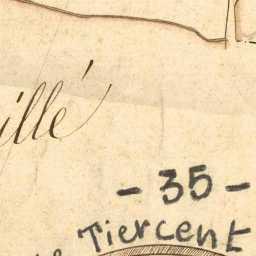 illé
- 35 -
Tiercent